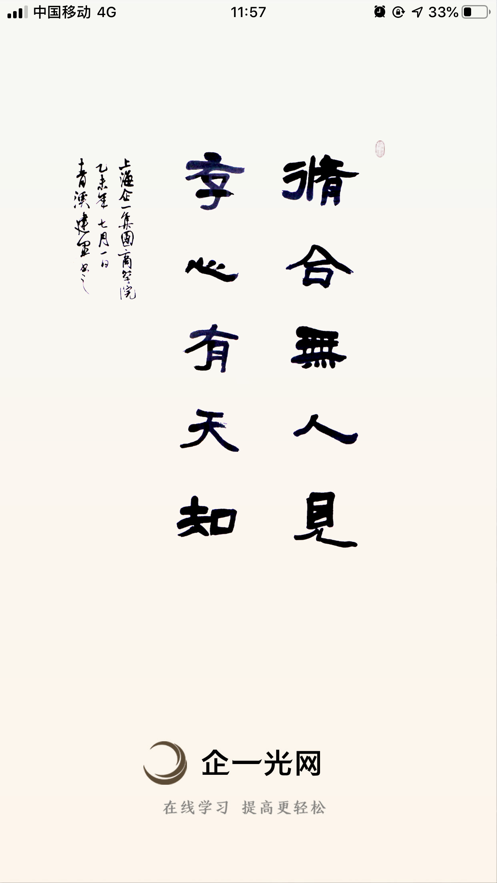 中国移动 4G
11:57
33%
脩合無人見
存心有天知
上海企一集團商學院
乙未年七月一日
青溪建军书之
企一光网
在线学习 提高更轻松